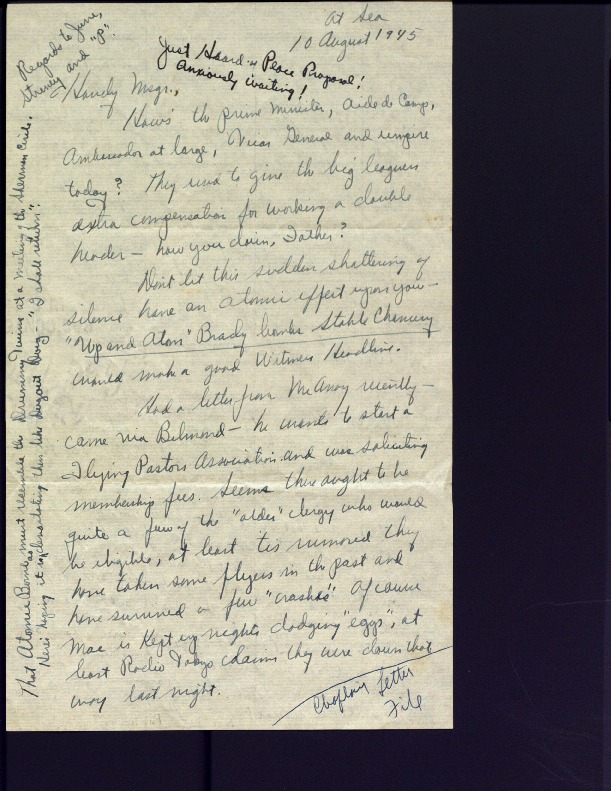 At Sea
10 August 1945
Just Heard Peace Proposal!
Anxiously waiting!
Howdy Msgr.,
How's th prime minister, aide de Camp,
Ambassador at large, Vicar General and umpire
today? They used to give th big leaguers
extra compensation for working a double
header — how you doin, Father?
Don't let this sudden shattering of
silence have an atomic effect upon you —
"Up and Atom" Brady bombs Stable Chancery
would make a good Witness Headline.
Had a letter from McAvoy recently —
came via Belmond — he wants to start a
Flying Pastors Association and was soliciting
membership fees. Seems there ought to be
quite a few of the "older" clergy who would
be eligible, at least tis rumored they
have taken some flyers in th past and
have survived a few "crashes" Of course
Mac is kept up nights dodging "eggs", at
least Radio Tokyo claims they were down that
way last night.
Chaplain Letter
File
That Atomic Bomb must resemble the Drumming Twins at a meeting of the Sherman Circle.
Here's hoping it
them like Dugout Doug — "I shall return".
Regards to June,
and "P".